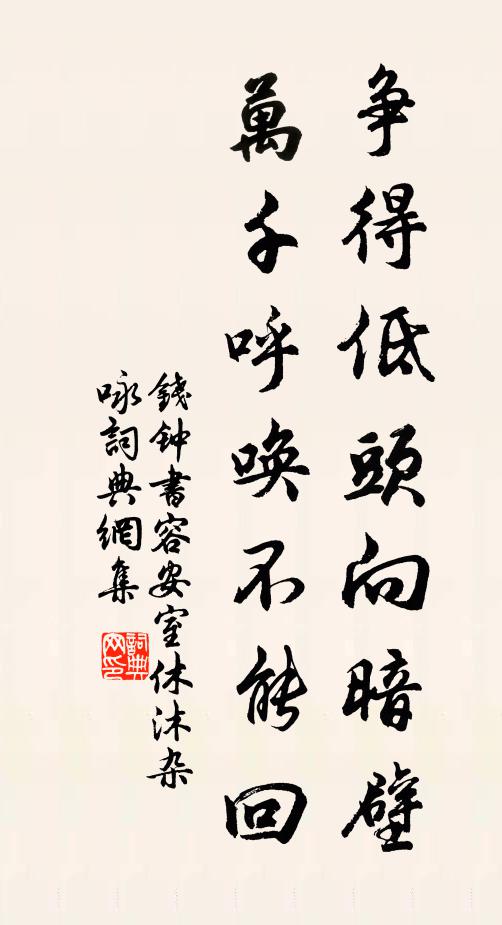 争得低頭向暗壁
萬千呼喚不能回
錢钟書容安室休沐杂
咏詞典網集
詞典网印